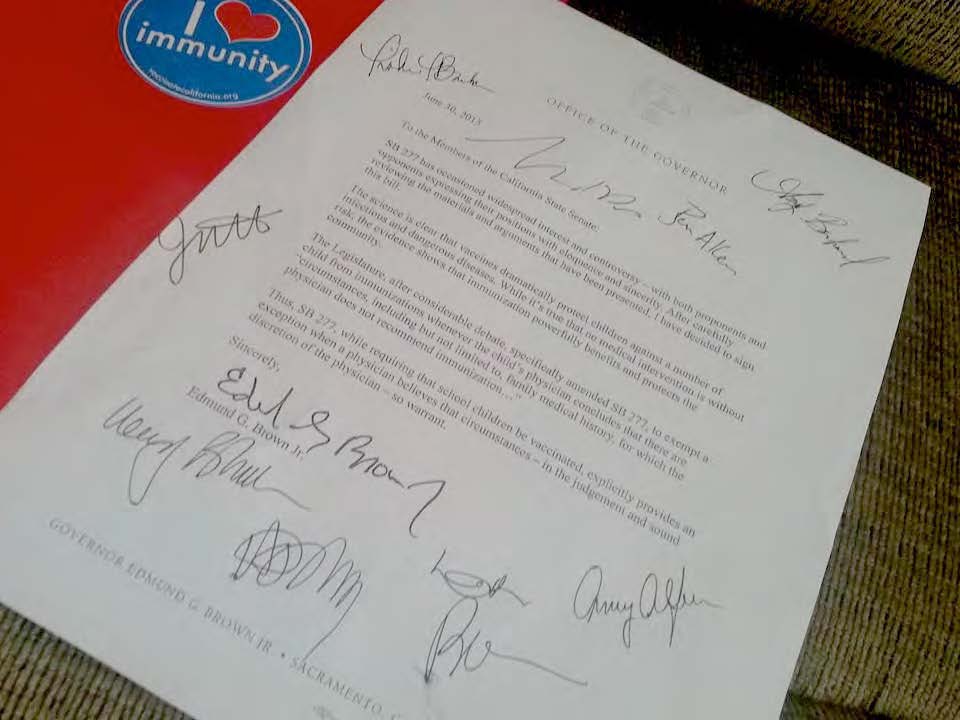 I
immunity
OFFICE OF THE GOVERNOR
June 30, 2015
To the Members of the California State Senate:
SB 277 has occasioned widespread interest and controversy – with both proponents and
opponents expressing their positions with eloquence and sincerity. After carefully
reviewing the materials and arguments that have been presented, I have decided to sign
this bill.
The science is clear that vaccines dramatically protect children against a number of
infectious and dangerous diseases. While it's true that no medical intervention is without
risk, the evidence shows that immunization powerfully benefits and protects the
community.
The Legislature, after considerable debate, specifically amended SB 277, to exempt a
child from immunizations whenever the child's physician concludes that there are
"circumstances, including but not limited to, family medical history, for which the
physician does not recommend immunization..."
Thus, SB 277, while requiring that school children be vaccinated, explicitly provides an
exception when a physician believes that circumstances – in the judgement and sound
discretion of the physician – so warrant.
Sincerely,
Edmund G. Brown Jr.
Ben Allen
GOVERNOR EDMUND G. BROWN JR. • SACRAMENTO, C